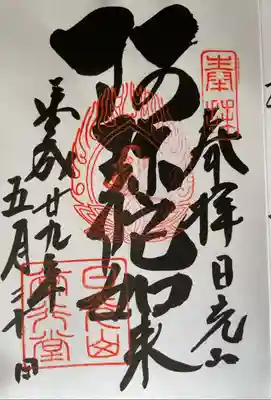 奉拝
奉拝日光山
阿弥陀如来
平成廿九年
五月三十日
日光山
常行堂